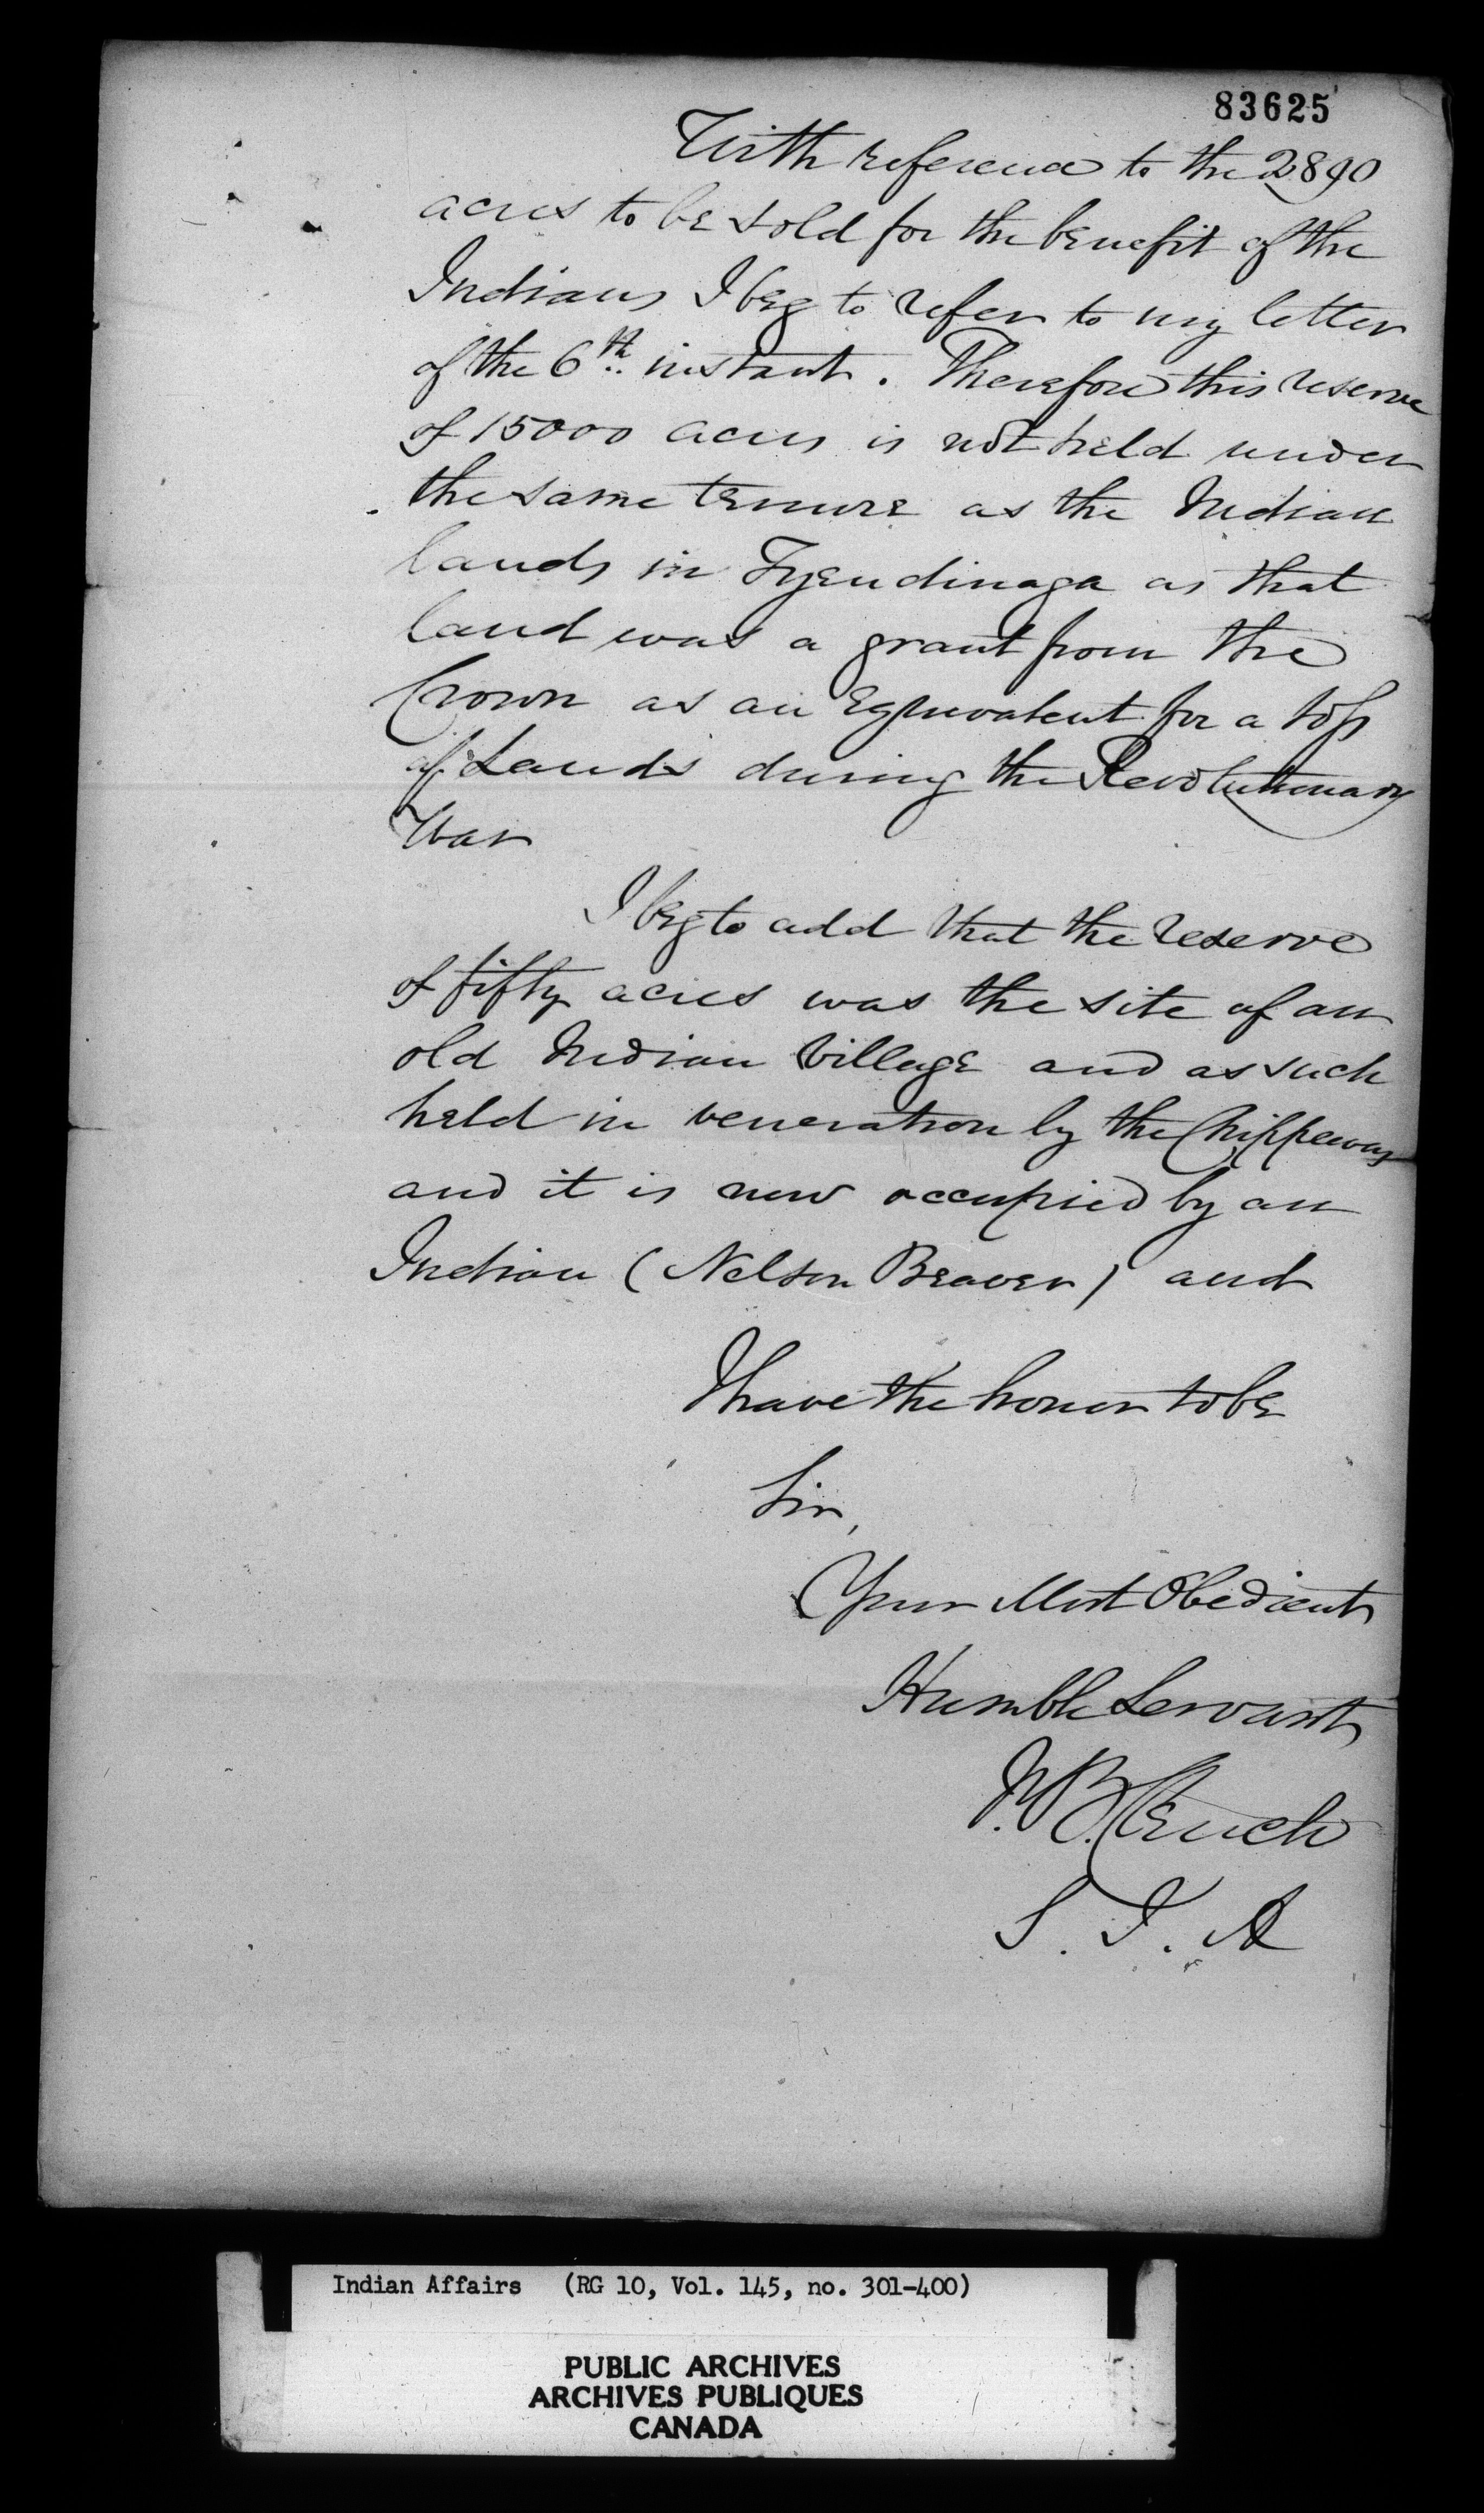 83625
With reference to the 2890
acres to be sold for the benefit of the
Indians I beg to refer to my letter
of the 6th. instant. Therefore this reserve
of 15000 acres is not held under
the same tenure as the Indian
lands in Tyendinaga as that
land was a grant from the
Crown as an Equivalent for a loss
of Lands during the Revolutionary
War
I beg to add that the reserve
of fifty acres was the site of an
old Indian Village and as such
held in veneration by the Chippeways
and it is now occupied by an
Indian (Nelson Beaver) and
I have the honor to be
Sir,
Your Most Obedient
Humble Servant
S. I. A
Indian Affairs (RG 10, Vol. 145, no. 301-400)
PUBLIC ARCHIVES
ARCHIVES PUBLIQUES
CANADA